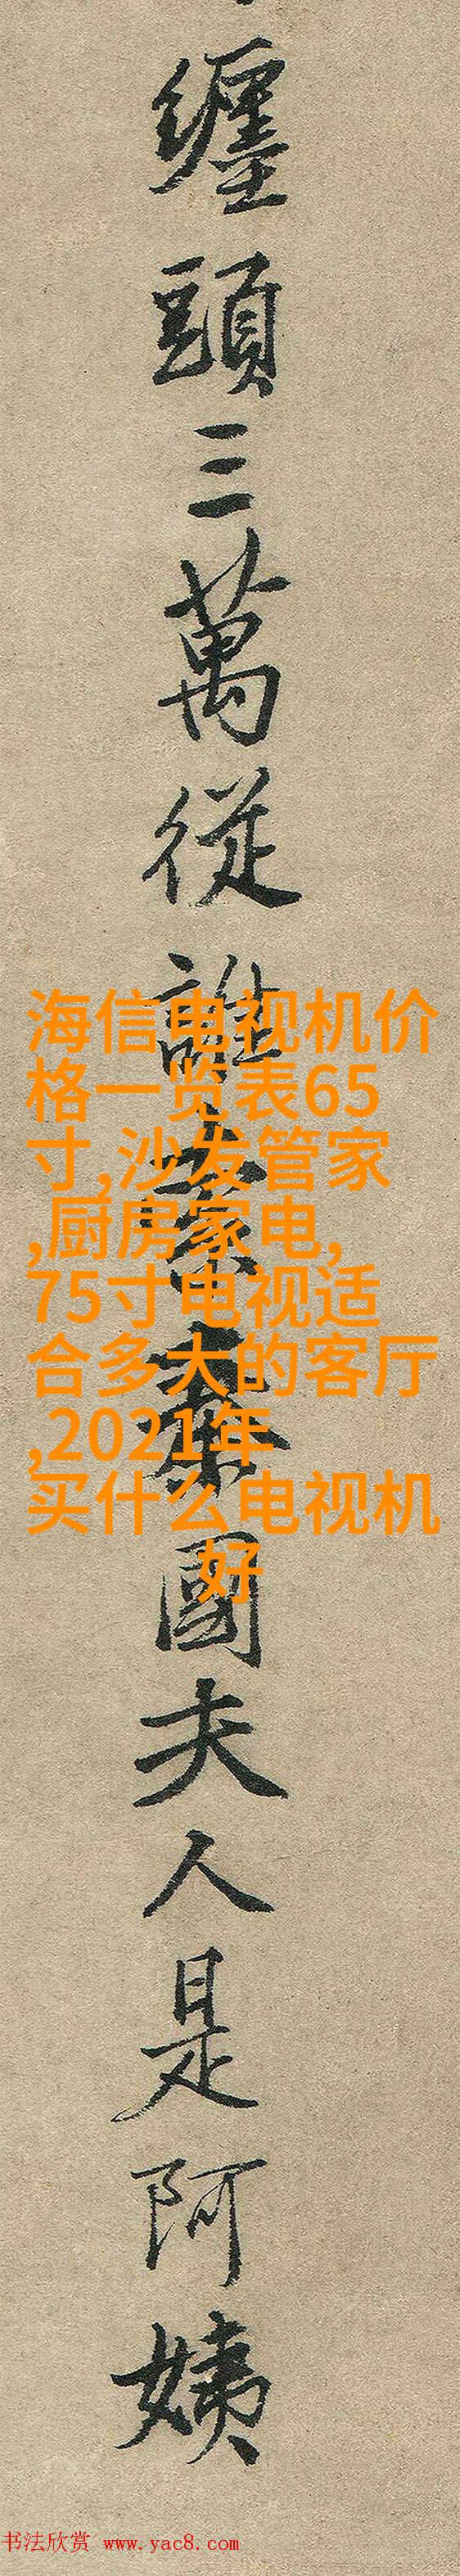 纏頭三萬從誰索秦國夫人是阿姨
海信电视机价
格一览表65
寸,沙发管家
,厨房家电,
75寸电视适
合多大的客厅
,2021年
买什么电视机
好
书法欣赏 www.yac8.com